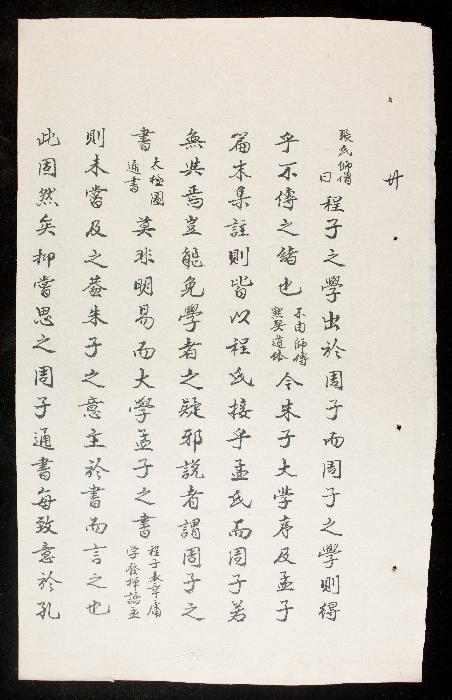 廾
張氏師僧曰程子之學出於周子而周子之學則得
乎不傳之緒也不由師傅默契道体今朱子大學序及孟子
篇末集註則皆以程氏接乎孟氏而周子若
無與焉豈能免學者之疑邪說者謂周子之
書太極圖通書莫非明易而大學孟子之書程子表章庸学發揮語孟
則未嘗及之蓋朱子之意主於書而言之也
此固然矣抑嘗思之周子通書每致意於孔